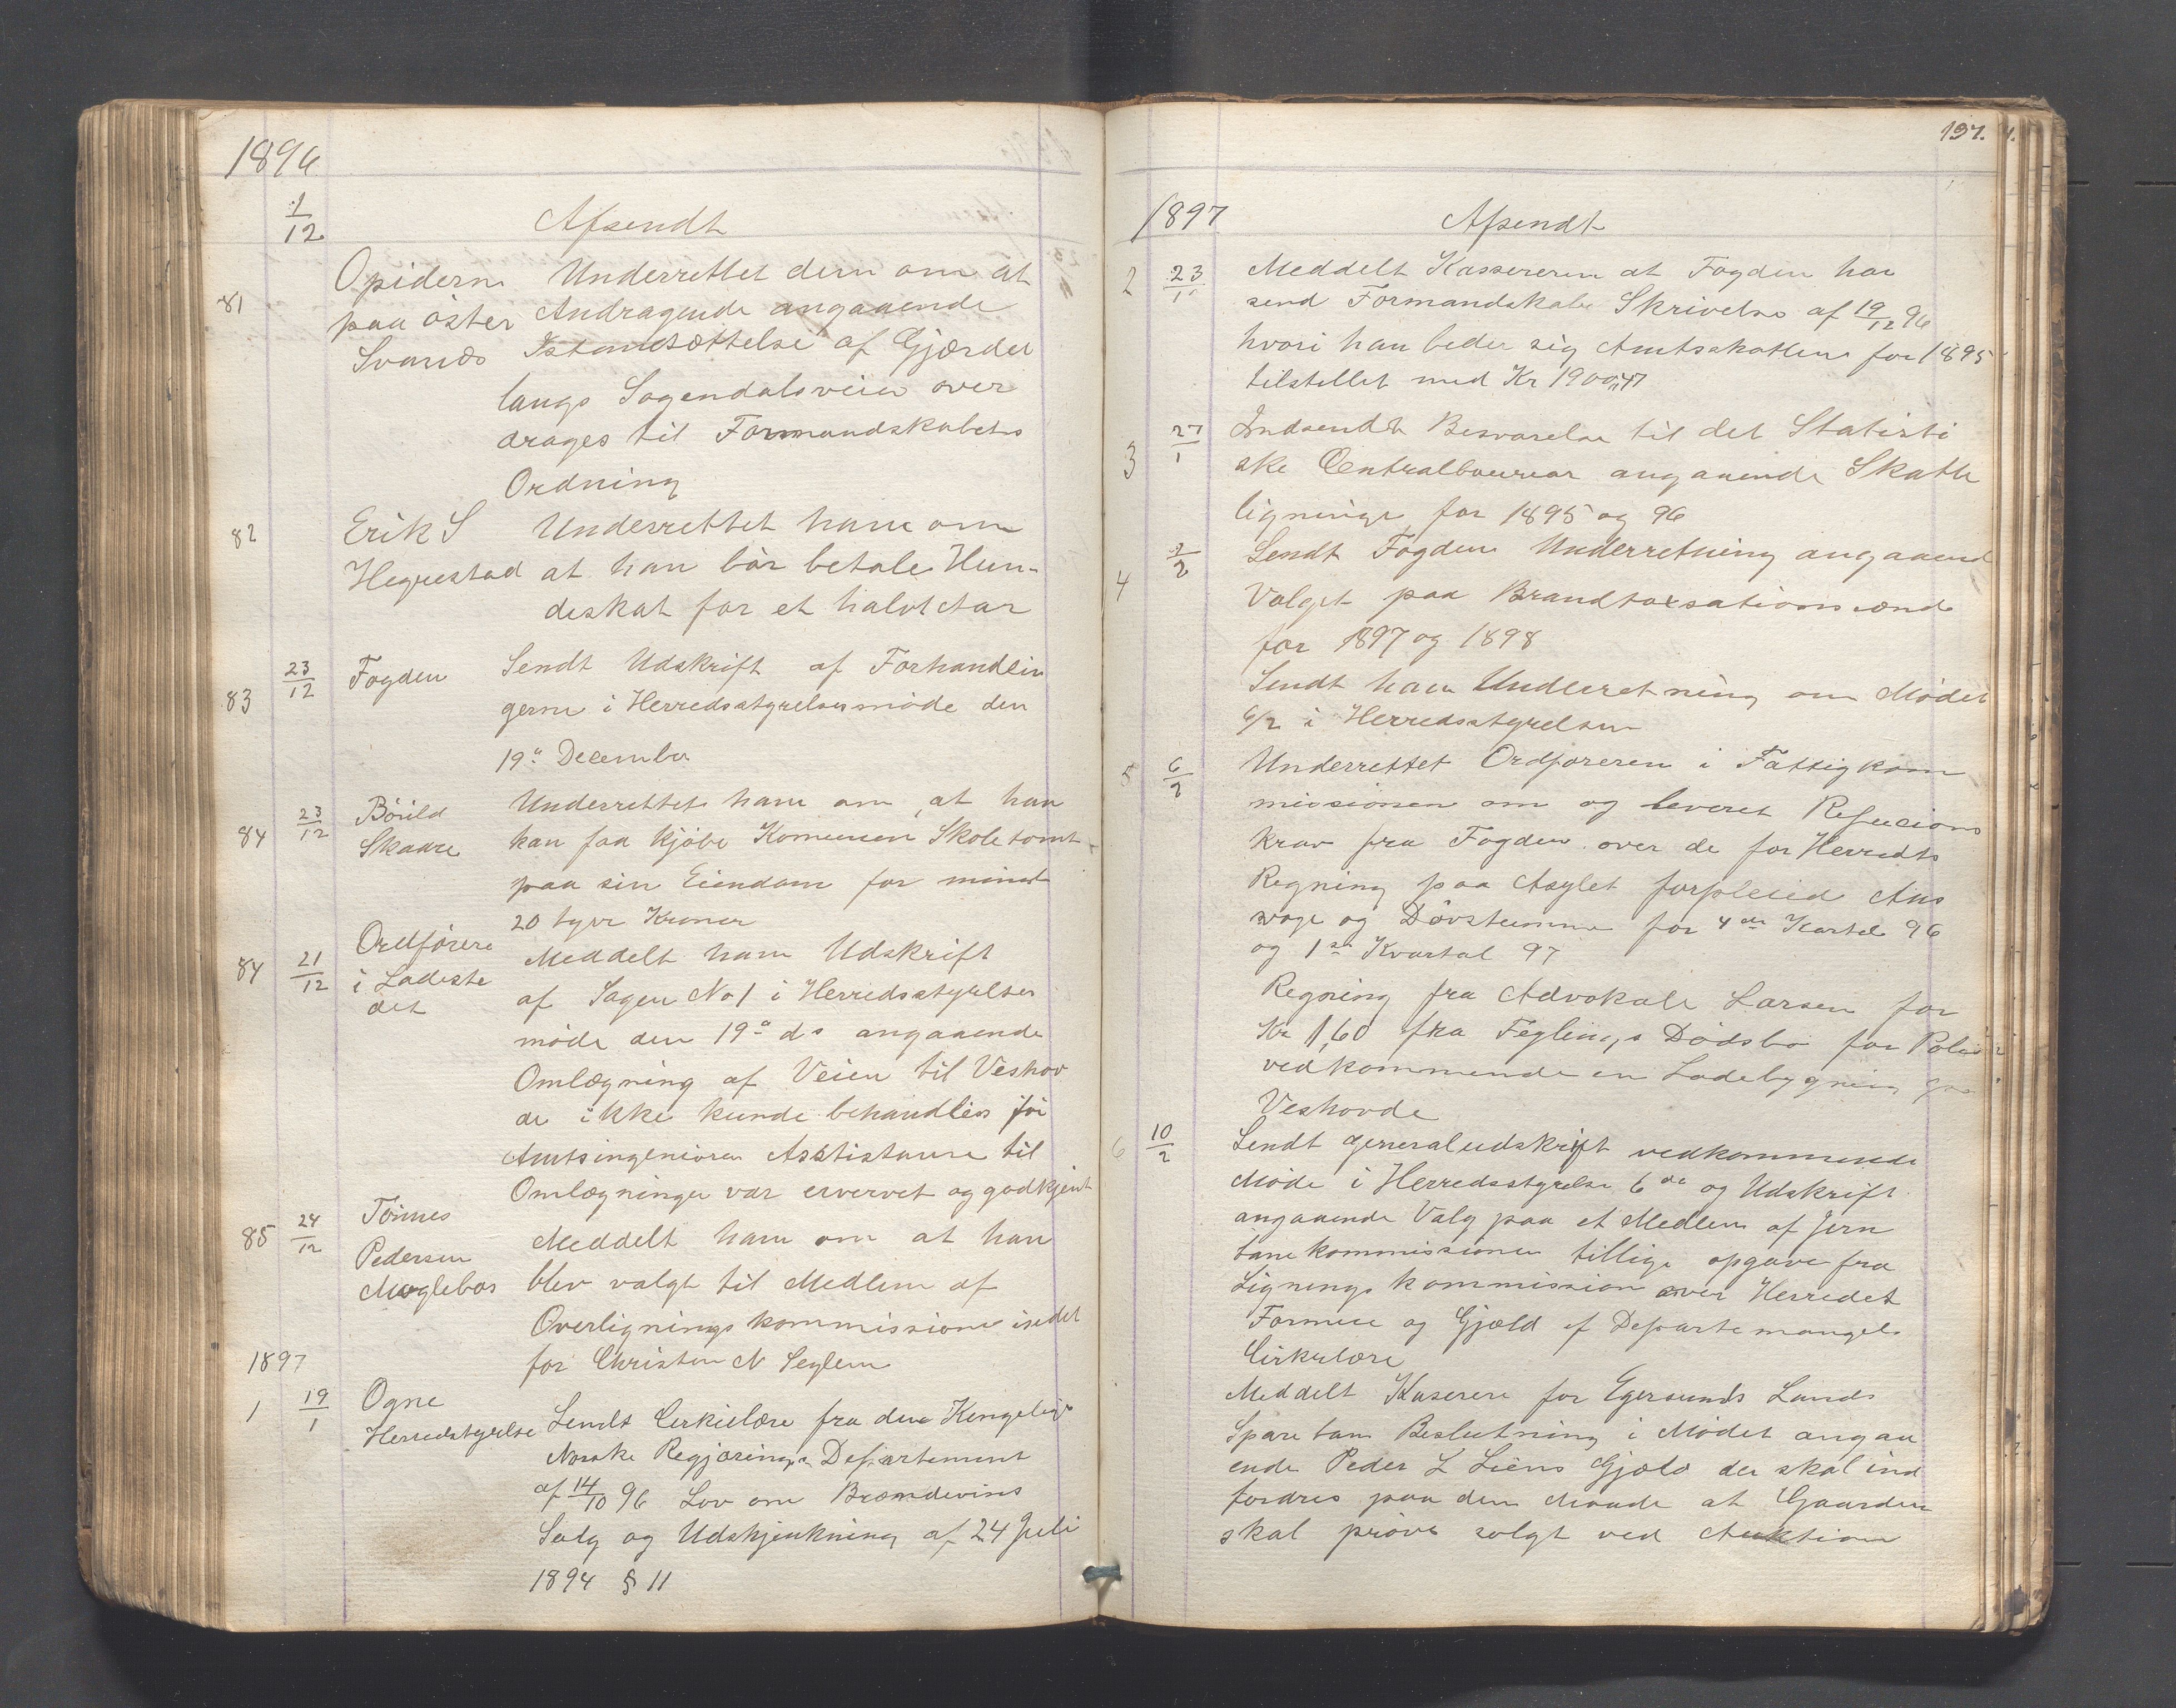 1896
1/12 Afsendt
81 Opidern Underrettet dem om at
paa öster Andragende angaaende
Svanæs Istandsættelse af Gjærdet
langs Sogendalsveien over
drages til Formandskabets
Ordning
82 Erik S Underrettet ham om
Hegrestad at han bör betale Hun-
deskat for et halvt Aar
83 23/12 Fogden Sendt Udskrift af Forhandlin
gerne i Herredsstyrelsesmöde den
19de December
84 23/12 Börild Underrettet ham om, at han
Skaare kan faa kjöbe Komunen Skoletomt
paa sin Eiendom for mindst
20 tyve Kroner
84 21/12 Ordförere Meddelt ham Udskrift
i Ladeste af Sagen No 1 i Herredsstyrelses
det möde den 19de ds angaaende
Omlægning af Veien til Veshov
de ikke kunde behandles för
Amtsingeniören Asstistanse til
Omlægninger var ervervet og godkjent
85 24/12 Tönnes Meddelt ham om at han
Pedersen blev valgt til Medlem af
Maglebos Overligningskommissione istedet
for Christen N Seglem
1897
1 19/1 Ogne Sendt Cirkulære fra den Kongelige
Herredstyrelse Norske Regjærings Departement
af 14/10 96 Lov om Brændevins
Salg og Udskjænkning af 24 Juli
1894 § 11
197.
1897 Afsendt
2 23/1 Meddelt Kassereren at Fogden har
send Formandskabe Skrivelse af 19/12 96
hvori han beder sig Amtsskatten for 1895
tilstillet med Kr 1900,47
3 27/1 Indsendt Besvarelse til det Statisti
ske Centralbureau angaaende Skatte
ligninge for 1895 og 96
4 2/2 Sendt Fogden Underretning angaaend
Valget paa Brandtaxsationsmænd
for 1897 og 1898
Sendt ham Underretning om Mödet
6/2 i Herredsstyrelsen
5 6/2 Underrettet Ordföreren i Fattigkom
missionen om og leveret Refucions
krav fra Fogden over de for Herredts
Regning paa Asylet forpleied Sins
svage og Dövstumme for 4de Kartal 96
og 1ste Kvartal 97
Regning fra Advokat Larsen for
Kr 1,60 fra Feglings Dödsbo for
vedkommende en Ladebygning paa
Veshovde
6 10/2 Sendt generaludskrift vedkommende
Möde i Herredsstyrelse 6de og Udskrift
angaaende Valg paa et Medlem af Jern
bane kommissionen tillige opgave fra
Lignings kommission over Herredet
Formue og Gjæld ef Departemangets
Cirkulære
Meddelt Kaserere for Egersunds Lands
Sparebam Beslutning i Mödet angaa
ende Peder L Liens Gjæld der skal ind
fordres paa den Maade at Gaarden
skal pröves solgt ved Auktion